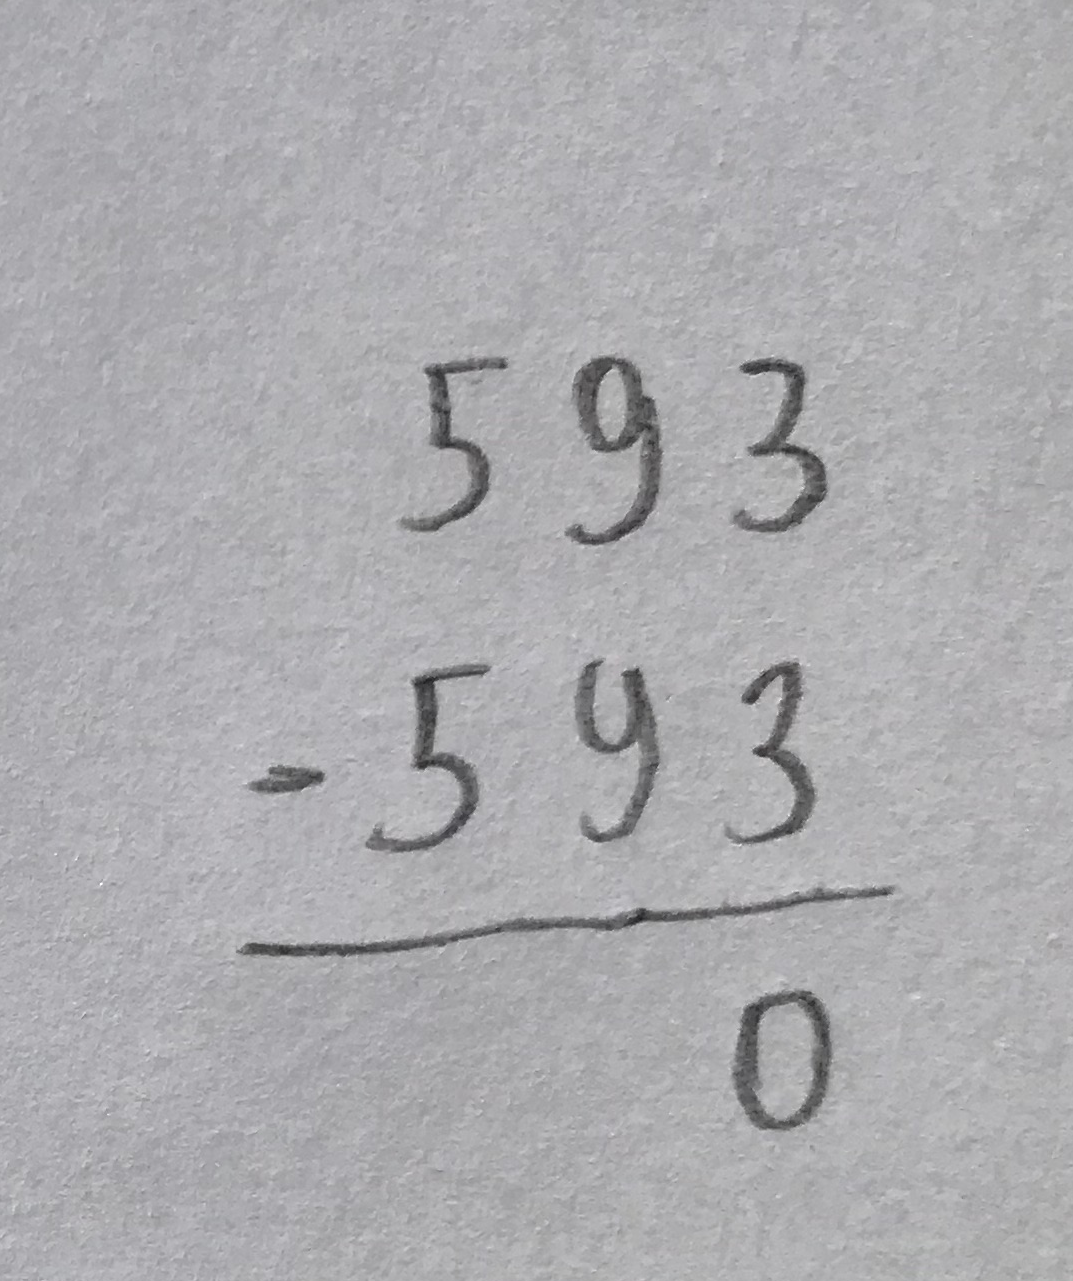 593
-593
0